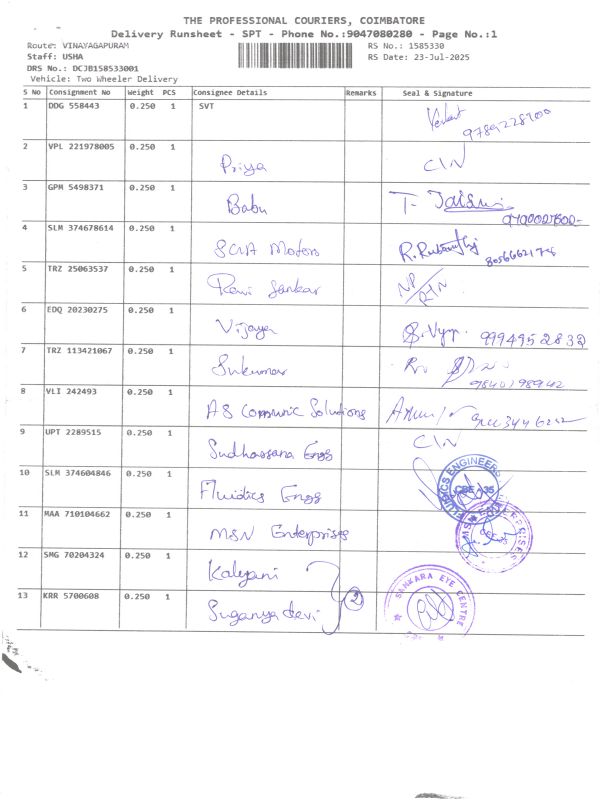 THE PROFESSIONAL COURIERS, COIMBATORE
Delivery Runsheet - SPT - Phone No.:9047080280 - Page No.:1
Route: VINAYAGAPURAM RS No.: 1585330
Staff: USHA RS Date: 23-Jul-2025
DRS No.: DCJB158533001
Vehicle: Two Wheeler Delivery
S No Consignment No Weight PCS Consignee Details Remarks Seal & Signature
1 DDG 558443 0.250 1 SVT
9789228900
2 VPL 221978005 0.250 1 Priya C/N
3 GPM 5498371 0.250 1 Babu T. Jaisui
4 SLM 374678614 0.250 1 SCUA Motors
5 TRZ 25063537 0.250 1 Ravi Sankar
6 EDQ 20230275 0.250 1 Vijaya 9994952832
7 TRZ 113421067 0.250 1 Sukumar
9840198942
8 VLI 242493 0.250 1 AS Communic Solutions
9 UPT 2289515 0.250 1 Sudhassana Engg C/N
10 SLM 374604846 0.250 1 Fluidics Engg FLUIDICS ENGINEERS CBE-35
11 MAA 710104662 0.250 1 MSN Enterprises MSN ENTERPRISES
12 SMG 70204324 0.250 1 Kalyani
13 KRR 5700608 0.250 1 Suganya devi 2 SANKARA EYE CENTRE